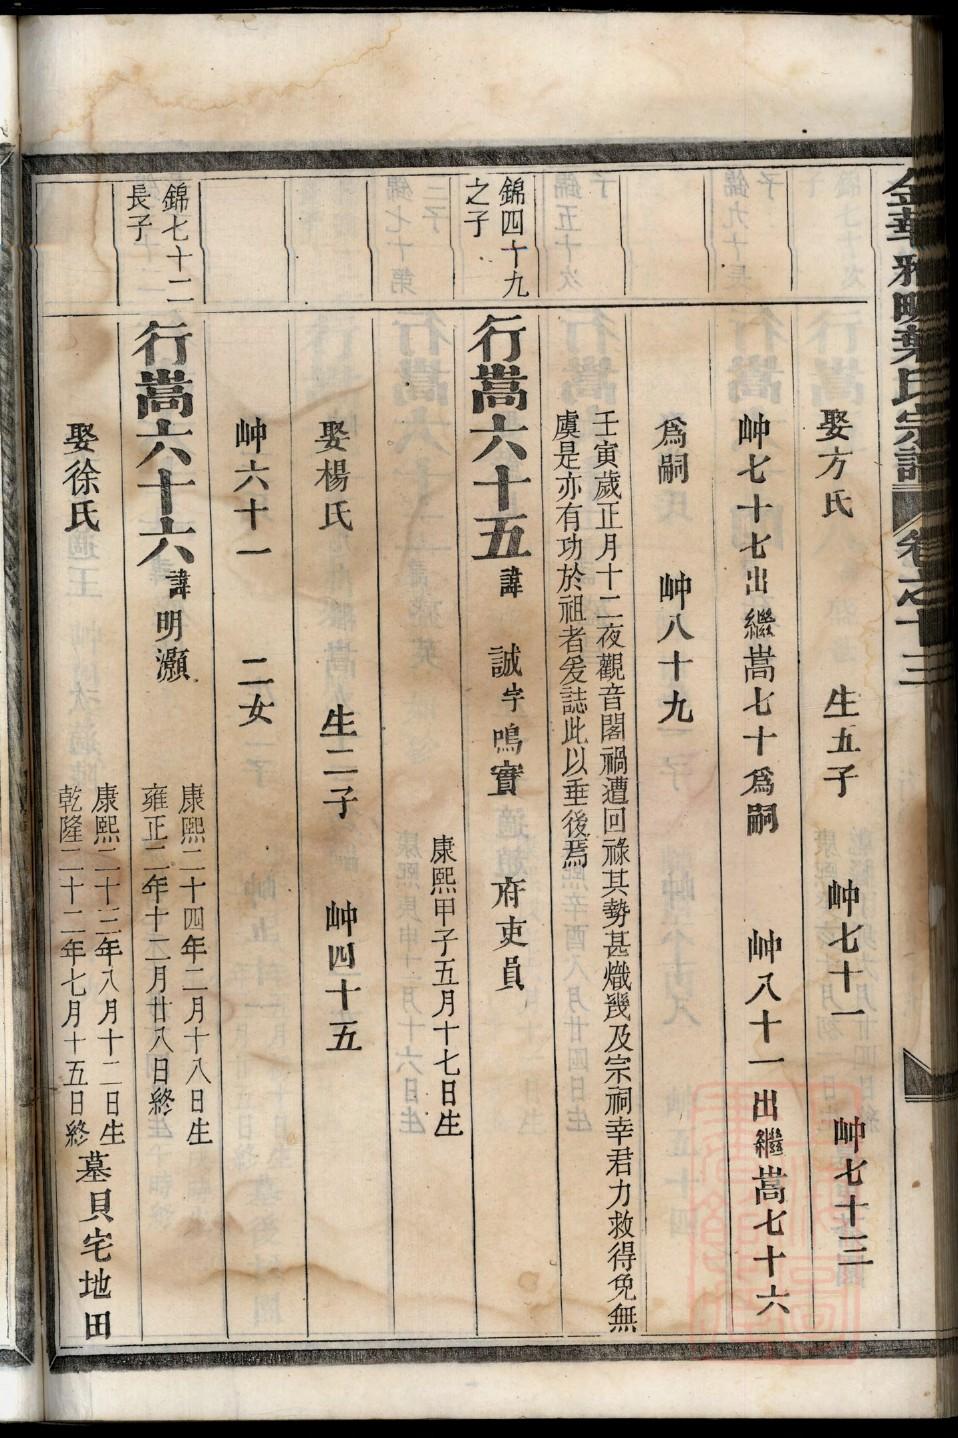 金華雅畈葉氏宗譜 卷之十三
娶方氏 生五子 㠶七十一 㠶七十三
㠶七十七出繼嵩七十為嗣 㠶八十一出繼嵩七十六
爲嗣 㠶八十九
壬寅歲正月十二夜觀音閣禍遭回祿其勢甚熾幾及宗祠幸君力救得免無
虞是亦有功於祖者爰誌此以垂後焉
錦四十九
之子
行嵩六十五 諱 誠 字 鳴實 府吏員
康熙甲子五月十七日生
娶楊氏 生二子 㠶四十五
㠶六十一 二女
錦七十二
長子
行嵩六十六 諱明灝
康熙二十四年二月十八日生
雍正二年十二月廿八日終
娶徐氏
康熙二十三年八月十二日生
乾隆二十二年七月十五日終
墓貝宅地田